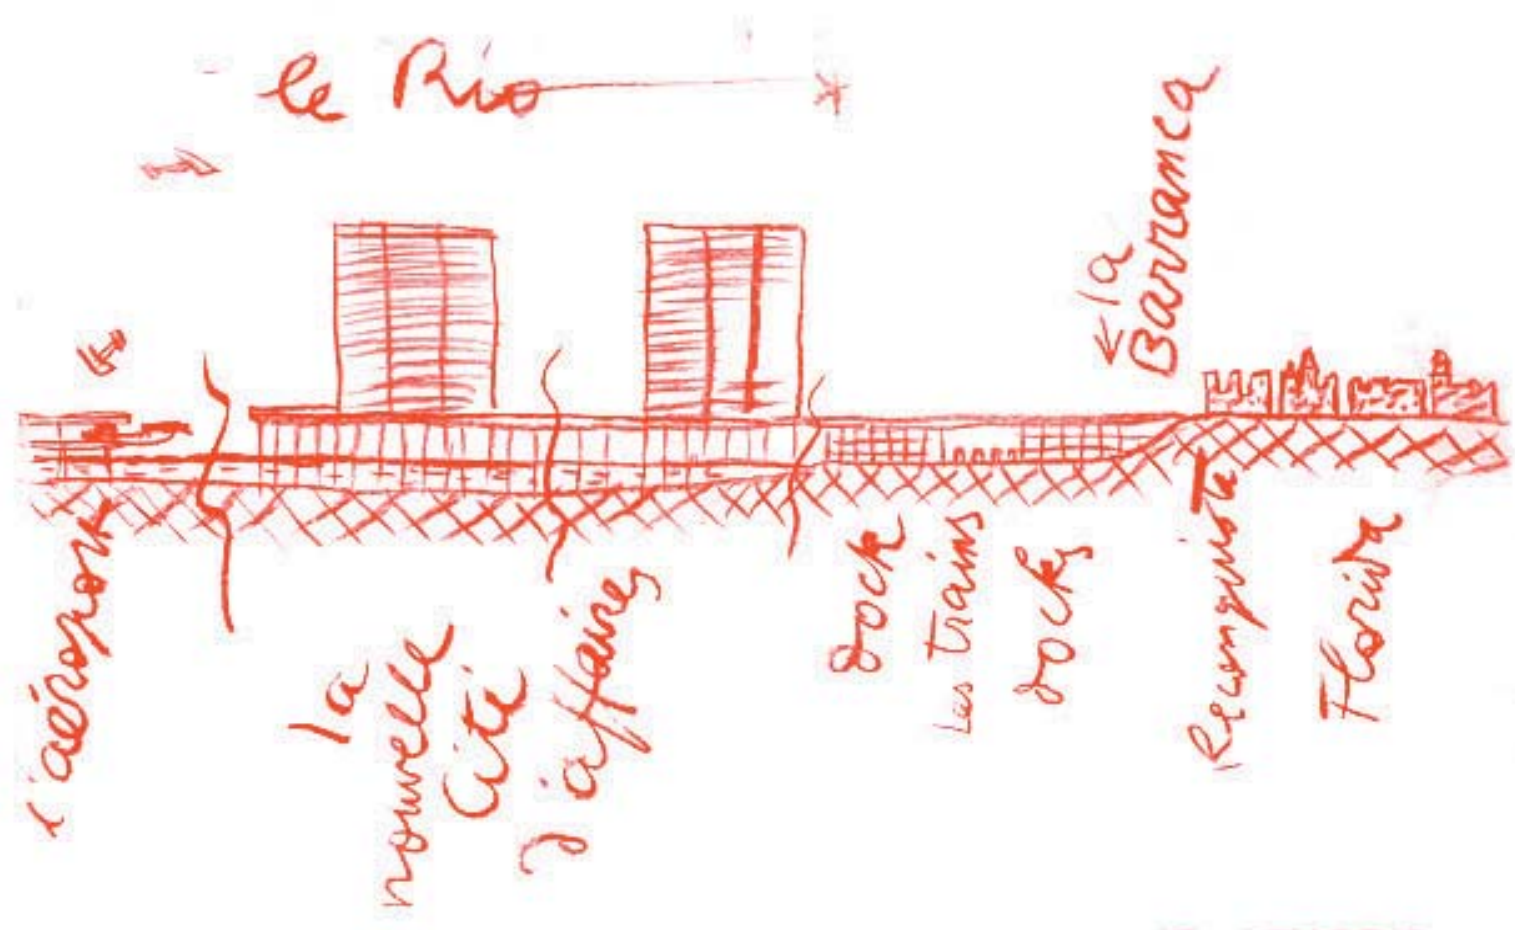 le Rio
la
Barranca
l'aéroport
la
nouvelle
Cité
d'affaires
dock
Les trains
docks
Reconquista
Florida